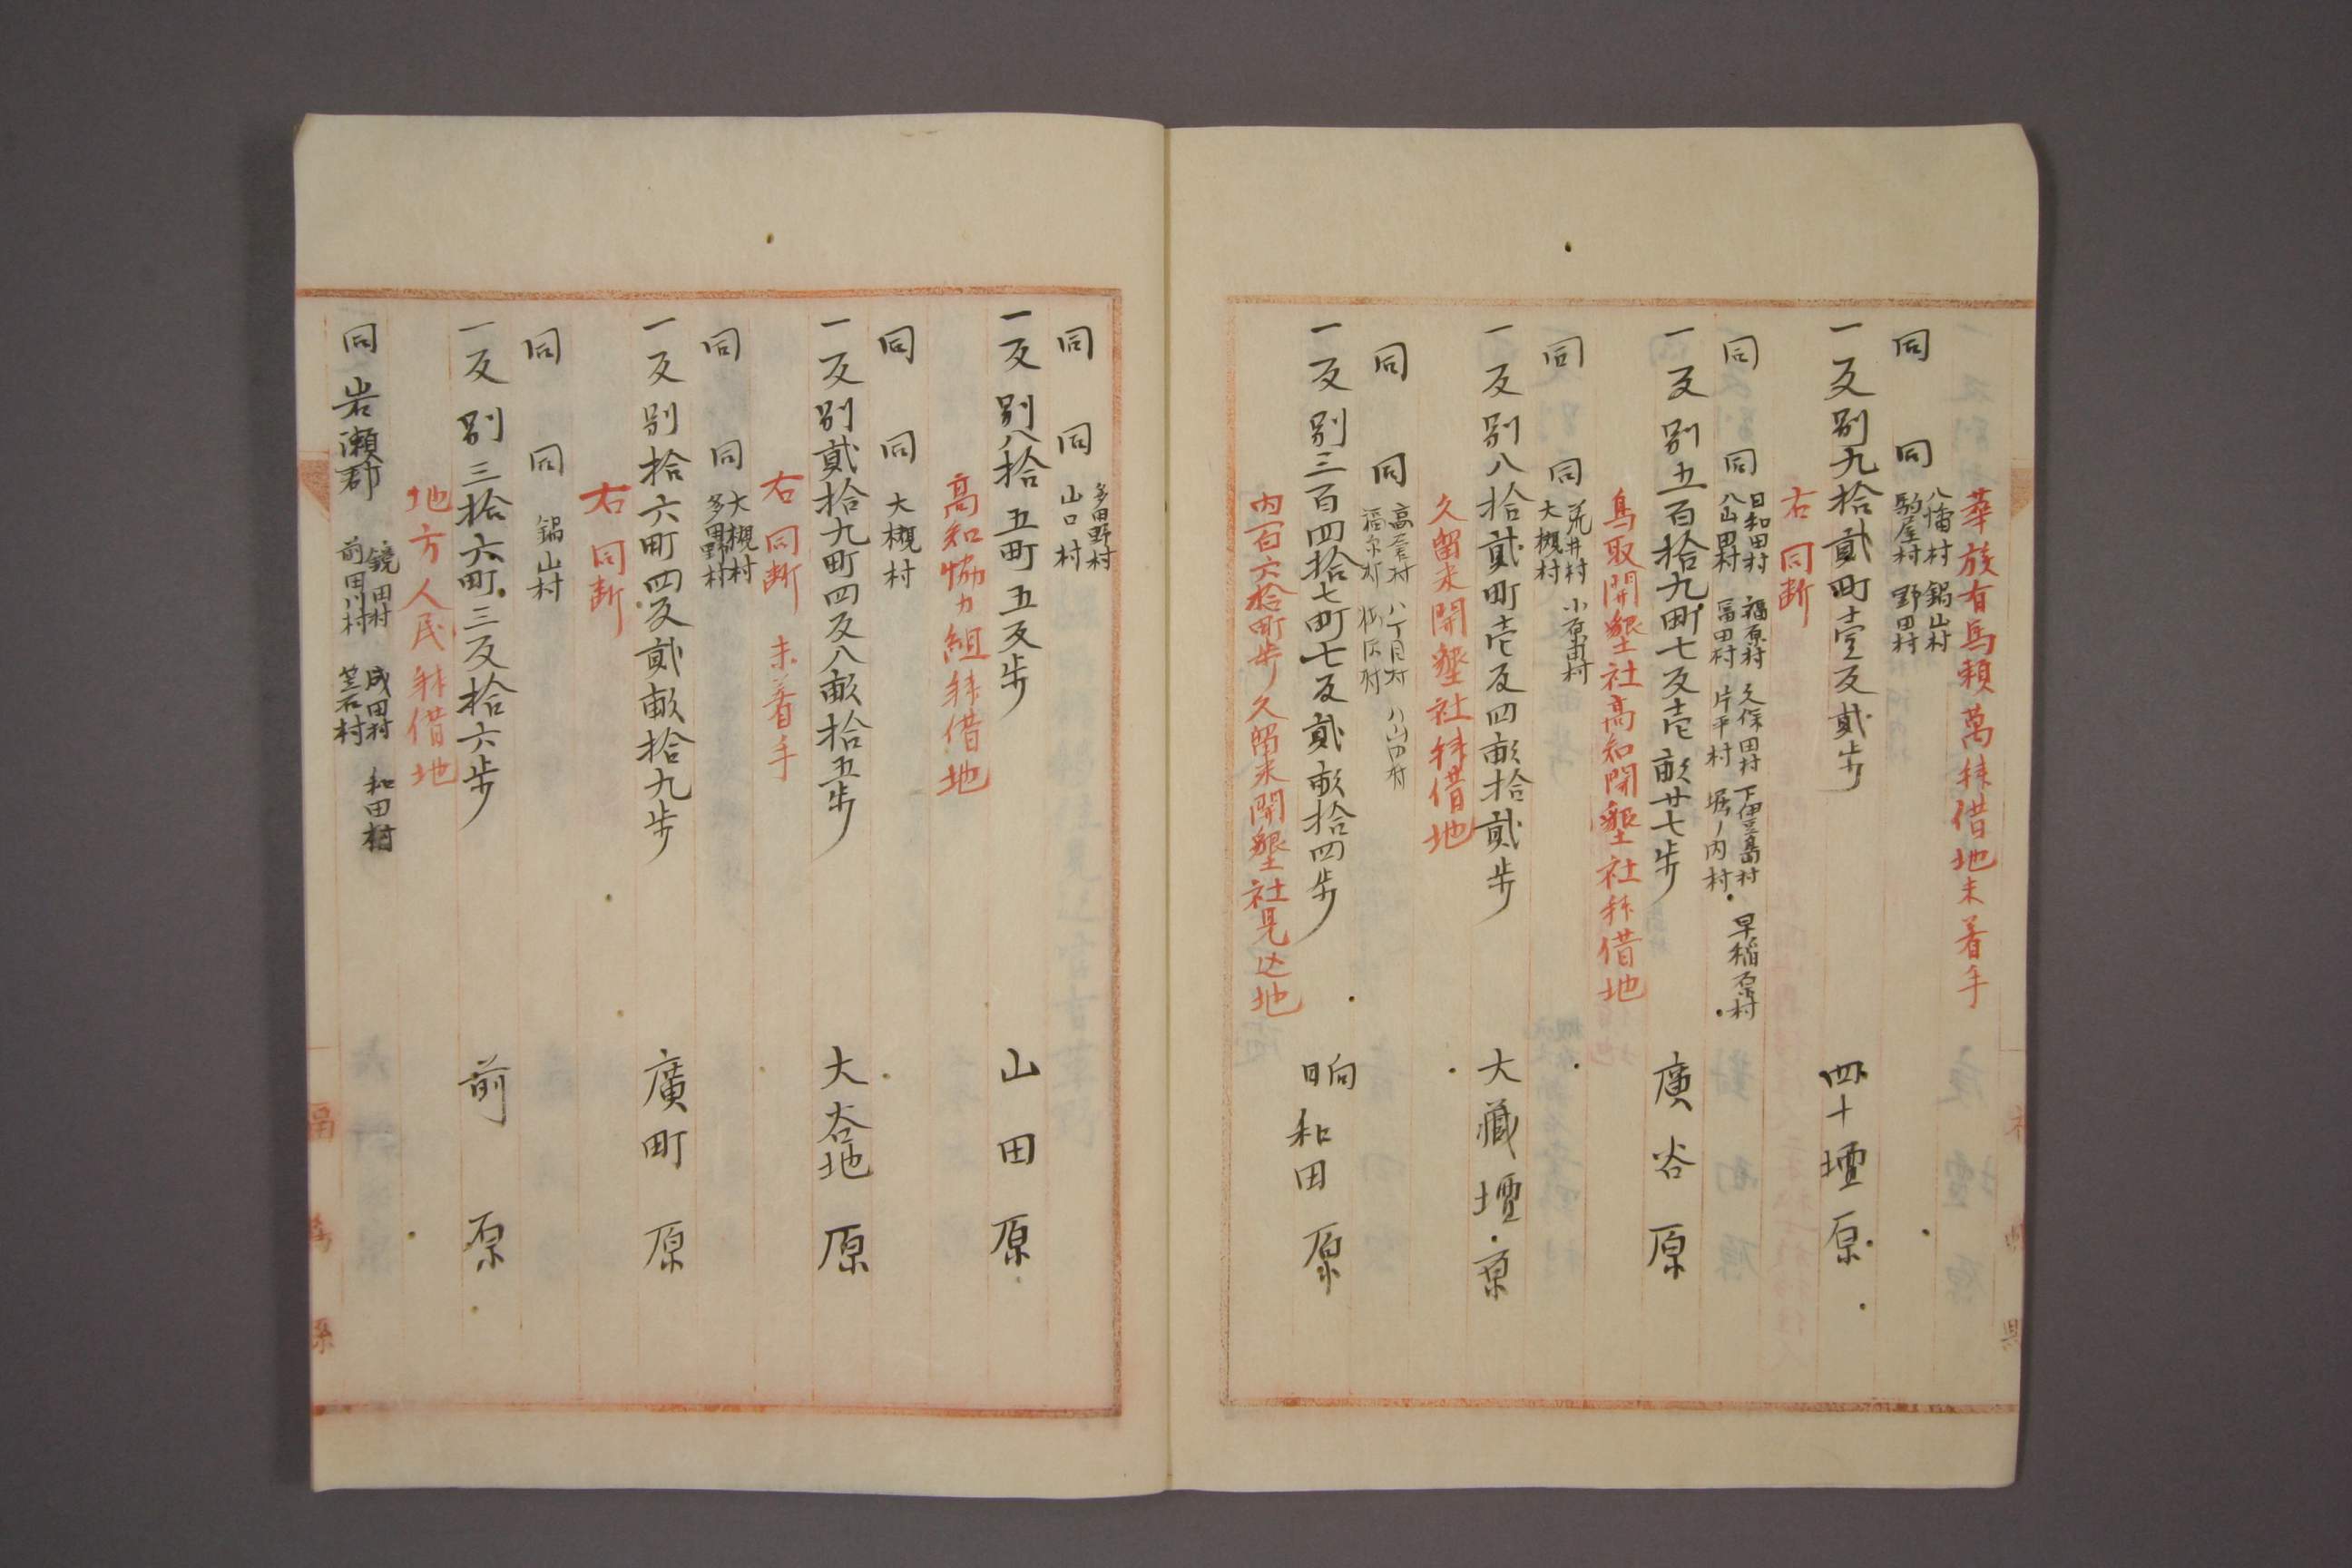 華族有馬頼萬拝借地未着手
同　同　八幡村　鍋山村
駒屋村　野田村
一反別九拾貳町壹反貳歩　四十壇原
右同断
同　同　日和田村　福原村　久保田村　下伊豆島村　早稲原村
八山田村　冨田村　片平村　堀ノ内村
一反別五百拾九町七反壱畝廿七歩　廣谷原
鳥取開墾社高知開墾社拝借地
同　同　荒井村　小原田村
大槻村
一反別八拾貳町壱反四畝拾貳歩　大藏壇原
久留米開墾社拝借地
同　同　高倉村　八丁目村　八山田村
一反別三百四拾七町七反貳畝拾四歩　日向和田原
内百六拾町歩久留米開墾社見込地
同　同　多田野村
山口村
一反別八拾五町五反歩　山田原
高知協力組拝借地
同　同　大槻村
一反別貳拾九町四反八畝拾五歩　大谷地原
右同断　未着手
同　同　大槻村
多田野村
一反別拾六町四反貳畝拾九歩　廣町原
右同断
同　同　鍋山村
一反別三拾六町三反拾六歩　前原
地方人民拝借地
同　岩瀬郡　鏡田村　成田村　和田村
前田川村　笠石村
福島縣